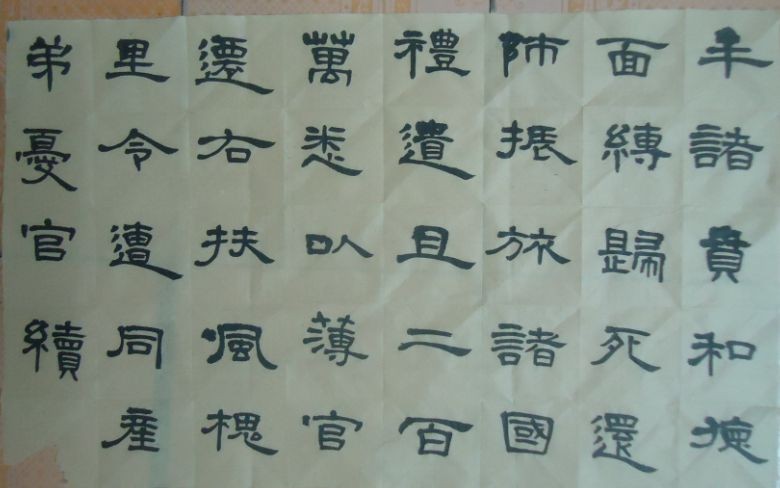 牟諸賁和德
面縛歸死還
師振旅諸國
禮遺且二百
萬悉以薄官
遷右扶風槐
里令遭同產
弟憂官續